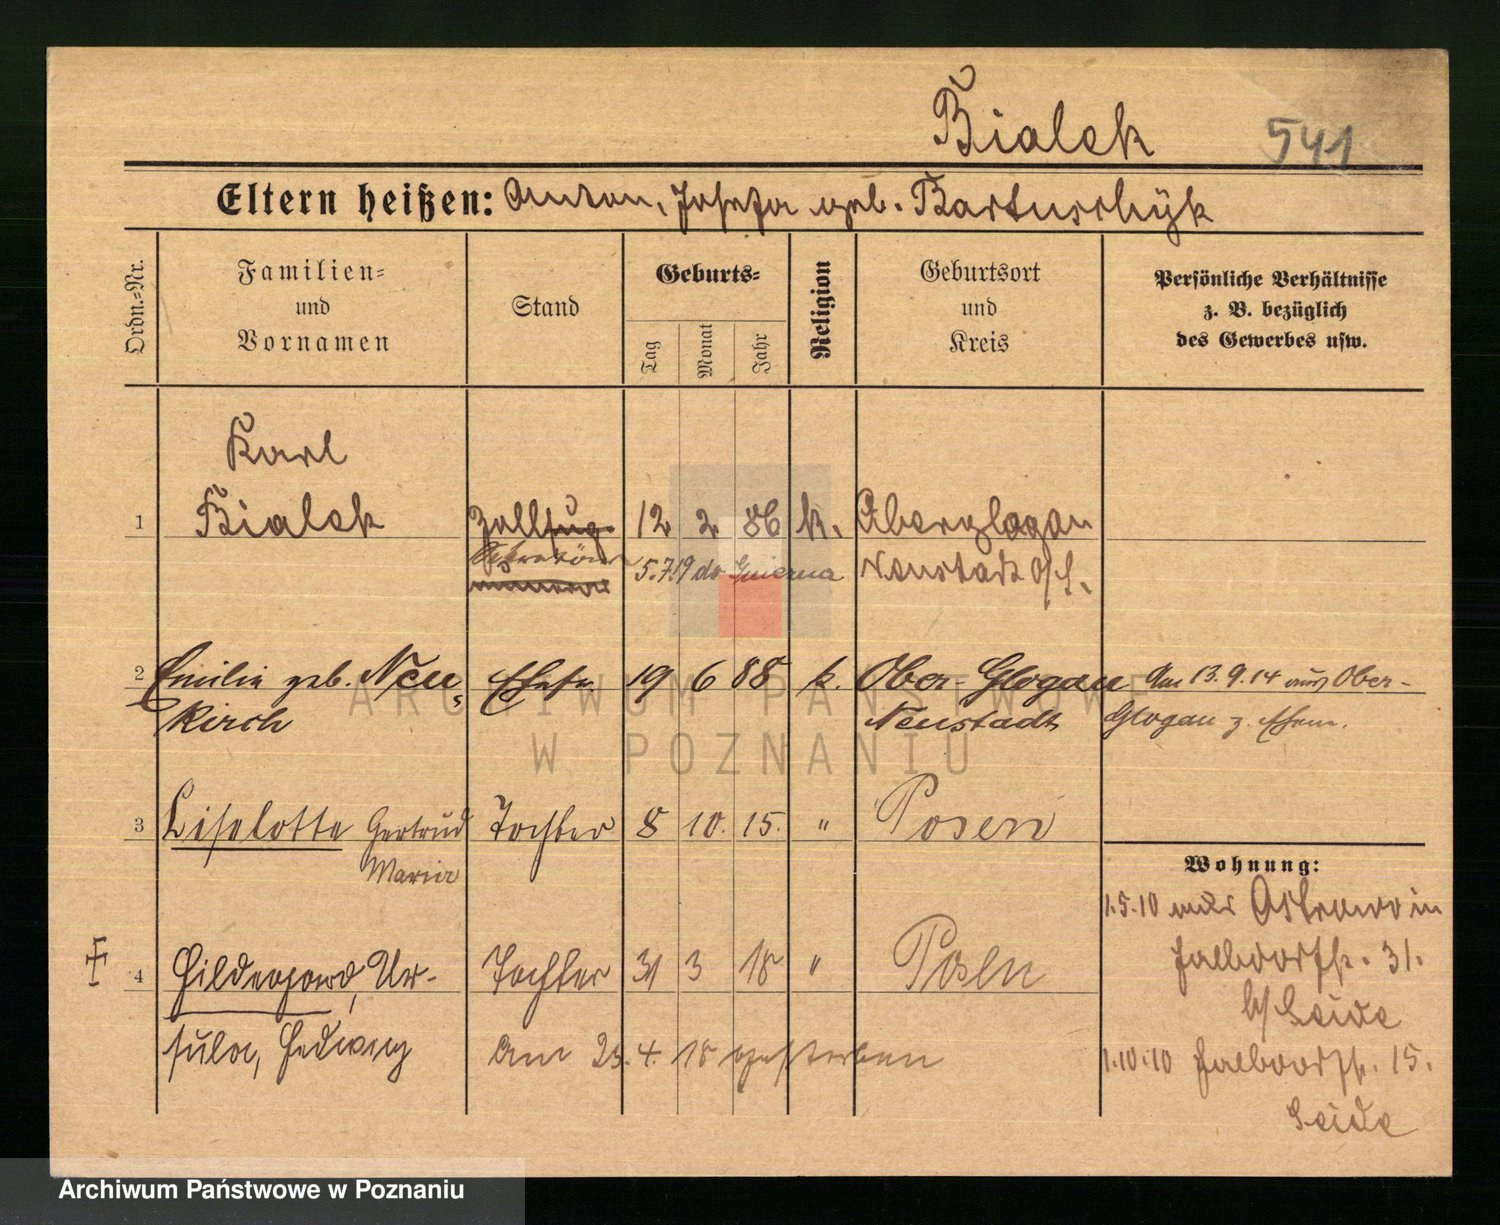 Bialek 541
Eltern heißen: Anton, Josefa geb. Bartuschyk
Ordn.-Nr.
Familien-
und
Vornamen
Stand
Geburts-
Tag
Monat
Jahr
Religion
Geburtsort
und
Kreis
Persönliche Verhältnisse
z. B. bezüglich
des Gewerbes usw.
Karl
1 Bialek 12 2 86 k. Oberglogau
5.7.19 Neustadt O/S.
2 Emilie geb. Neu- Ehefr. 19 6 88 k. Ober-Glogau Am 13.9.14 aus Ober-
kirch Neustadt Glogau z. Ehem.
3 Liselotte Gertrud Tochter 8 10. 15. " Posen
Maria
Wohnung:
1.5.10 aus Ostrowo in
4 Hildegard, Ur- Tochter 31 3 18 " Posen
31.
b/ Seide
sula, Hedwig Am 23.4.18 gestorben
1.10.10 15.
Seide
ARCHIWUM PAŃSTWOWE
W POZNANIU
Archiwum Państwowe w Poznaniu